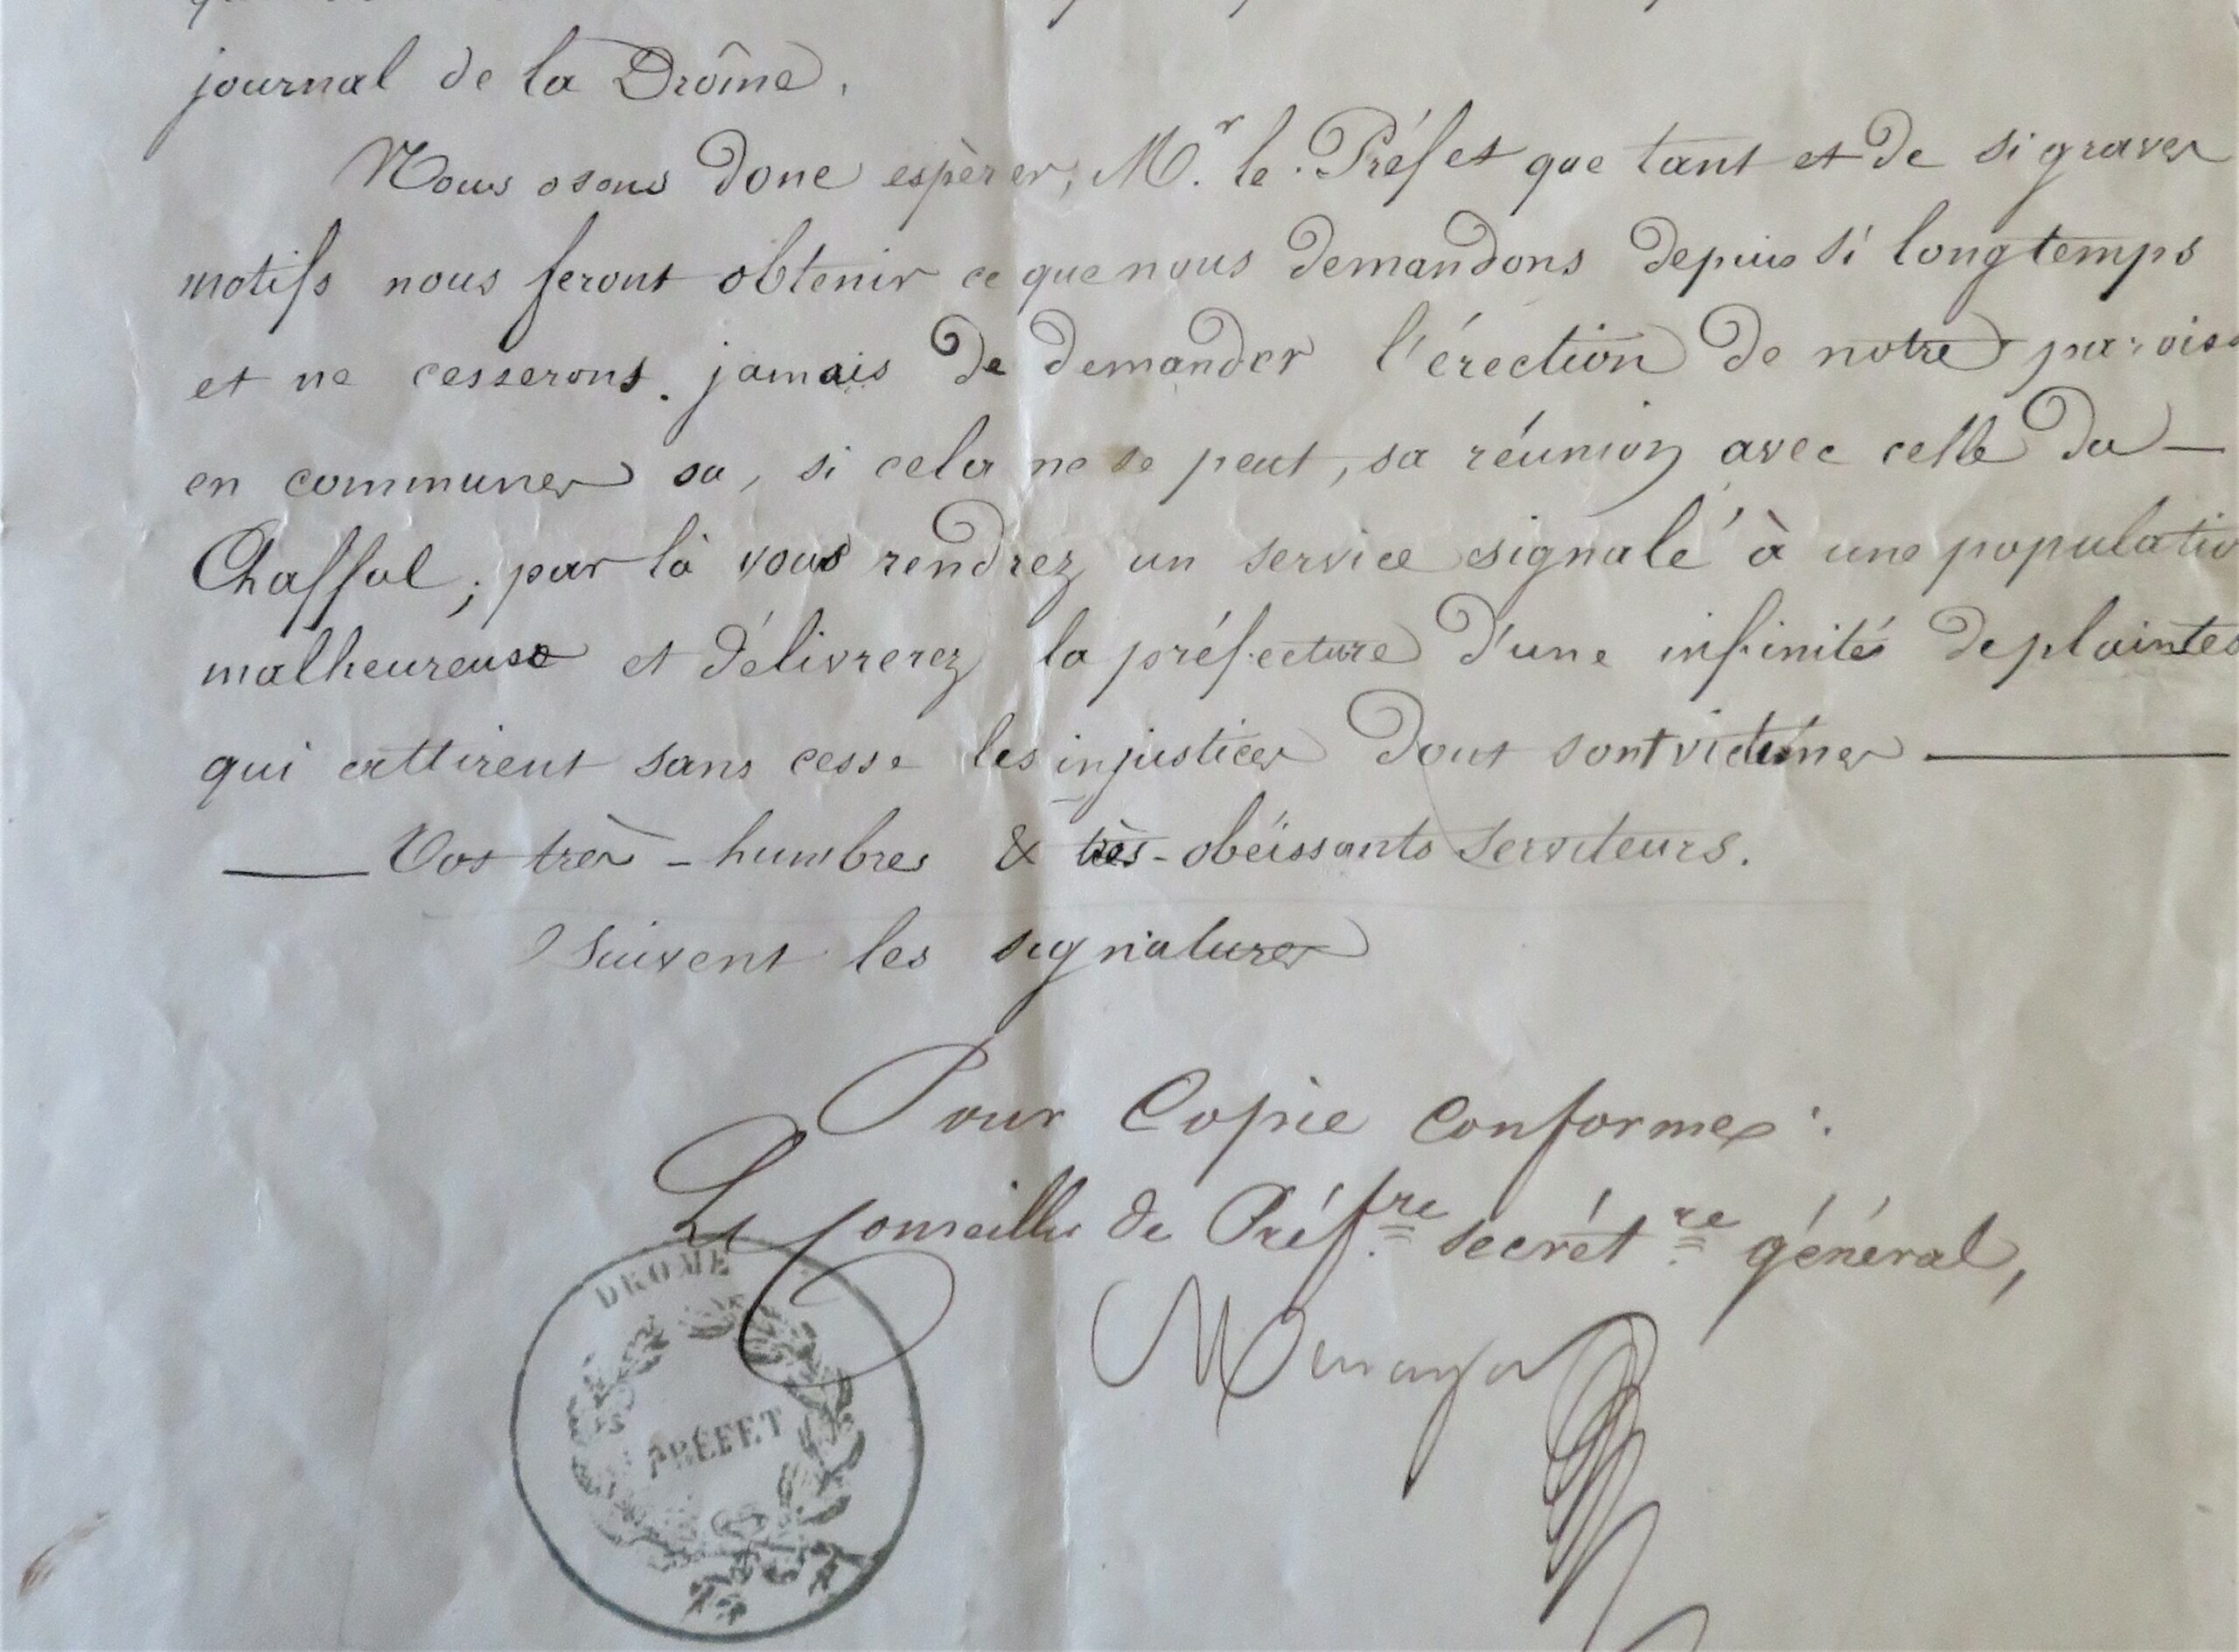 journal de la Drôme.
Nous osons donc espèrer, Mr. le Préfet que tant et de si graves
motifs nous feront obtenir ce que nous demandons depuis si longtemps
et ne cesserons jamais de demander l'érection de notre parois
en commune, ou, si cela ne se peut, sa réunion avec celle du —
Chaffal; par là vous rendrez un service signalé à une populatio
malheureuse et délivrerez la préfecture d'une infinité de plaintes
qui attirent sans cesse les injustices dont sont victimes —
— Vos très-humbres & très-obéissants serviteurs.
Suivent les signatures
Pour Copie conforme:
Le Conseiller de Préf.re secrét.re général,
DROME
PRÉFET